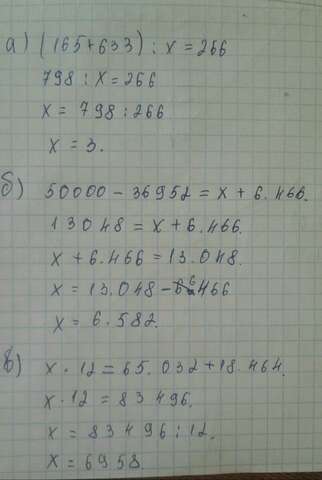 а) (165+633) : x = 266
798 : x = 266
x = 798 : 266
x = 3.
б) 50000 - 36952 = x + 6.466.
13048 = x + 6.466.
x + 6.466 = 13.048.
x = 13.048 - 6 466
x = 6.582.
в) x · 12 = 65.032 + 18.464.
x · 12 = 83 496.
x = 83496 : 12.
x = 6958.